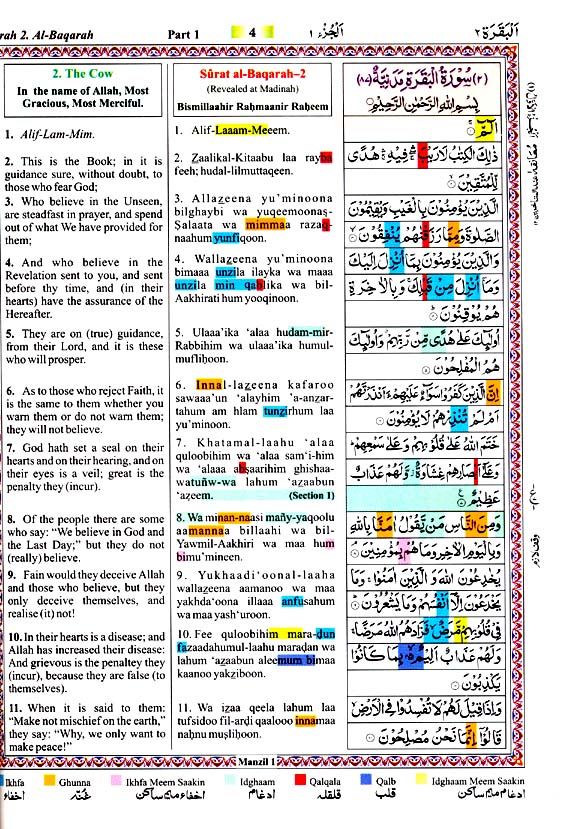 rah 2. Al-Baqarah Part 1 4 اَلْجُزْء ١ اَلْبَقَرَة ٢
2. The Cow
In the name of Allah, Most
Gracious, Most Merciful.
1. Alif-Lam-Mim.
2. This is the Book; in it is
guidance sure, without doubt, to
those who fear God;
3. Who believe in the Unseen,
are steadfast in prayer, and spend
out of what We have provided for
them;
4. And who believe in the
Revelation sent to you, and sent
before thy time, and (in their
hearts) have the assurance of the
Hereafter.
5. They are on (true) guidance,
from their Lord, and it is these
who will prosper.
6. As to those who reject Faith, it
is the same to them whether you
warn them or do not warn them;
they will not believe.
7. God hath set a seal on their
hearts and on their hearing, and on
their eyes is a veil; great is the
penalty they (incur).
8. Of the people there are some
who say: “We believe in God and
the Last Day;” but they do not
(really) believe.
9. Fain would they deceive Allah
and those who believe, but they
only deceive themselves, and
realise (it) not!
10. In their hearts is a disease; and
Allah has increased their disease:
And grievous is the penaltey they
(incur), because they are false (to
themselves).
11. When it is said to them:
“Make not mischief on the earth,”
they say: “Why, we only want to
make peace!”
Sûrat al-Baqarah–2
(Revealed at Madinah)
Bismillaahir Raḥmaanir Raḥeem
1. Alif-Laaam-Meeem.
2. Zaalikal-Kitaabu laa rayba
feeh; hudal-lilmuttaqeen.
3. Allazeena yu’minoona
bilghaybi wa yuqeemoonaṣ-
Ṣalaata wa mimmaa razaq-
naahum yunfiqoon.
4. Wallazeena yu’minoona
bimaaa unzila ilayka wa maaa
unzila min qablika wa bil-
Aakhirati hum yooqinoon.
5. Ulaaa’ika ‘alaa hudam-mir-
Rabbihim wa ulaaa’ika humul-
mufliḥoon.
6. Innal-lazeena kafaroo
sawaaa’un ‘alayhim ’a-anzar-
tahum am hlam tunzirhum laa
yu’minoon.
7. Khatamal-laahu ‘alaa
quloobihim wa ‘alaa sam‘i-him
wa ‘alaaa abṣaarihim ghishaa-
watuñw-wa lahum ‘azaabun
‘azeem. (Section 1)
8. Wa minan-naasi mañy-yaqoolu
aamannaa billaahi wa bil-
Yawmil-Aakhiri wa maa hum
bimu’mineen.
9. Yukhaadi‘oonal-laaha
wallazeena aamanoo wa maa
yakhda‘oona illaaa anfusahum
wa maa yash‘uroon.
10. Fee quloobihim mara-ḍun
fazaadahumul-laahu maraḍan wa
lahum ‘azaabun aleemum bimaa
kaanoo yakziboon.
11. Wa izaa qeela lahum laa
tufsidoo fil-arḍi qaalooo innamaa
naḥnu muṣliḥoon.
(٢) سُوْرَةُ الْبَقَرَةِ مَدَنِيَّةٌ (٨٧)
بِسْمِ اللّٰهِ الرَّحْمٰنِ الرَّحِيْمِ
الٓمّٓ
ذٰلِكَ الْكِتٰبُ لَا رَيْبَ فِيْهِ هُدًى
لِّلْمُتَّقِيْنَ
الَّذِيْنَ يُؤْمِنُوْنَ بِالْغَيْبِ وَيُقِيْمُوْنَ
الصَّلٰوةَ وَمِمَّا رَزَقْنٰهُمْ يُنْفِقُوْنَ
وَالَّذِيْنَ يُؤْمِنُوْنَ بِمَآ اُنْزِلَ اِلَيْكَ
وَمَآ اُنْزِلَ مِنْ قَبْلِكَ وَبِالْاٰخِرَةِ
هُمْ يُوْقِنُوْنَ
اُولٰٓئِكَ عَلٰى هُدًى مِّنْ رَّبِّهِمْ وَاُولٰٓئِكَ
هُمُ الْمُفْلِحُوْنَ
اِنَّ الَّذِيْنَ كَفَرُوْا سَوَآءٌ عَلَيْهِمْ ءَاَنْذَرْتَهُمْ
اَمْ لَمْ تُنْذِرْهُمْ لَا يُؤْمِنُوْنَ
خَتَمَ اللّٰهُ عَلٰى قُلُوْبِهِمْ وَعَلٰى سَمْعِهِمْ
وَعَلٰٓى اَبْصَارِهِمْ غِشَاوَةٌ وَّلَهُمْ عَذَابٌ
عَظِيْمٌ
وَمِنَ النَّاسِ مَنْ يَّقُوْلُ اٰمَنَّا بِاللّٰهِ
وَبِالْيَوْمِ الْاٰخِرِ وَمَا هُمْ بِمُؤْمِنِيْنَ
يُخٰدِعُوْنَ اللّٰهَ وَالَّذِيْنَ اٰمَنُوْا وَمَا
يَخْدَعُوْنَ اِلَّآ اَنْفُسَهُمْ وَمَا يَشْعُرُوْنَ
فِيْ قُلُوْبِهِمْ مَّرَضٌ فَزَادَهُمُ اللّٰهُ مَرَضًا
وَلَهُمْ عَذَابٌ اَلِيْمٌ بِمَا كَانُوْا
يَكْذِبُوْنَ
وَاِذَا قِيْلَ لَهُمْ لَا تُفْسِدُوْا فِى الْاَرْضِ
قَالُوْٓا اِنَّمَا نَحْنُ مُصْلِحُوْنَ
Manzil 1
Ikhfa Ghunna Ikhfa Meem Saakin Idghaam Qalqala Qalb Idghaam Meem Saakin
اخفاء غنّہ اخفاء میم ساکن ادغام قلقلہ قلب ادغام میم ساکن